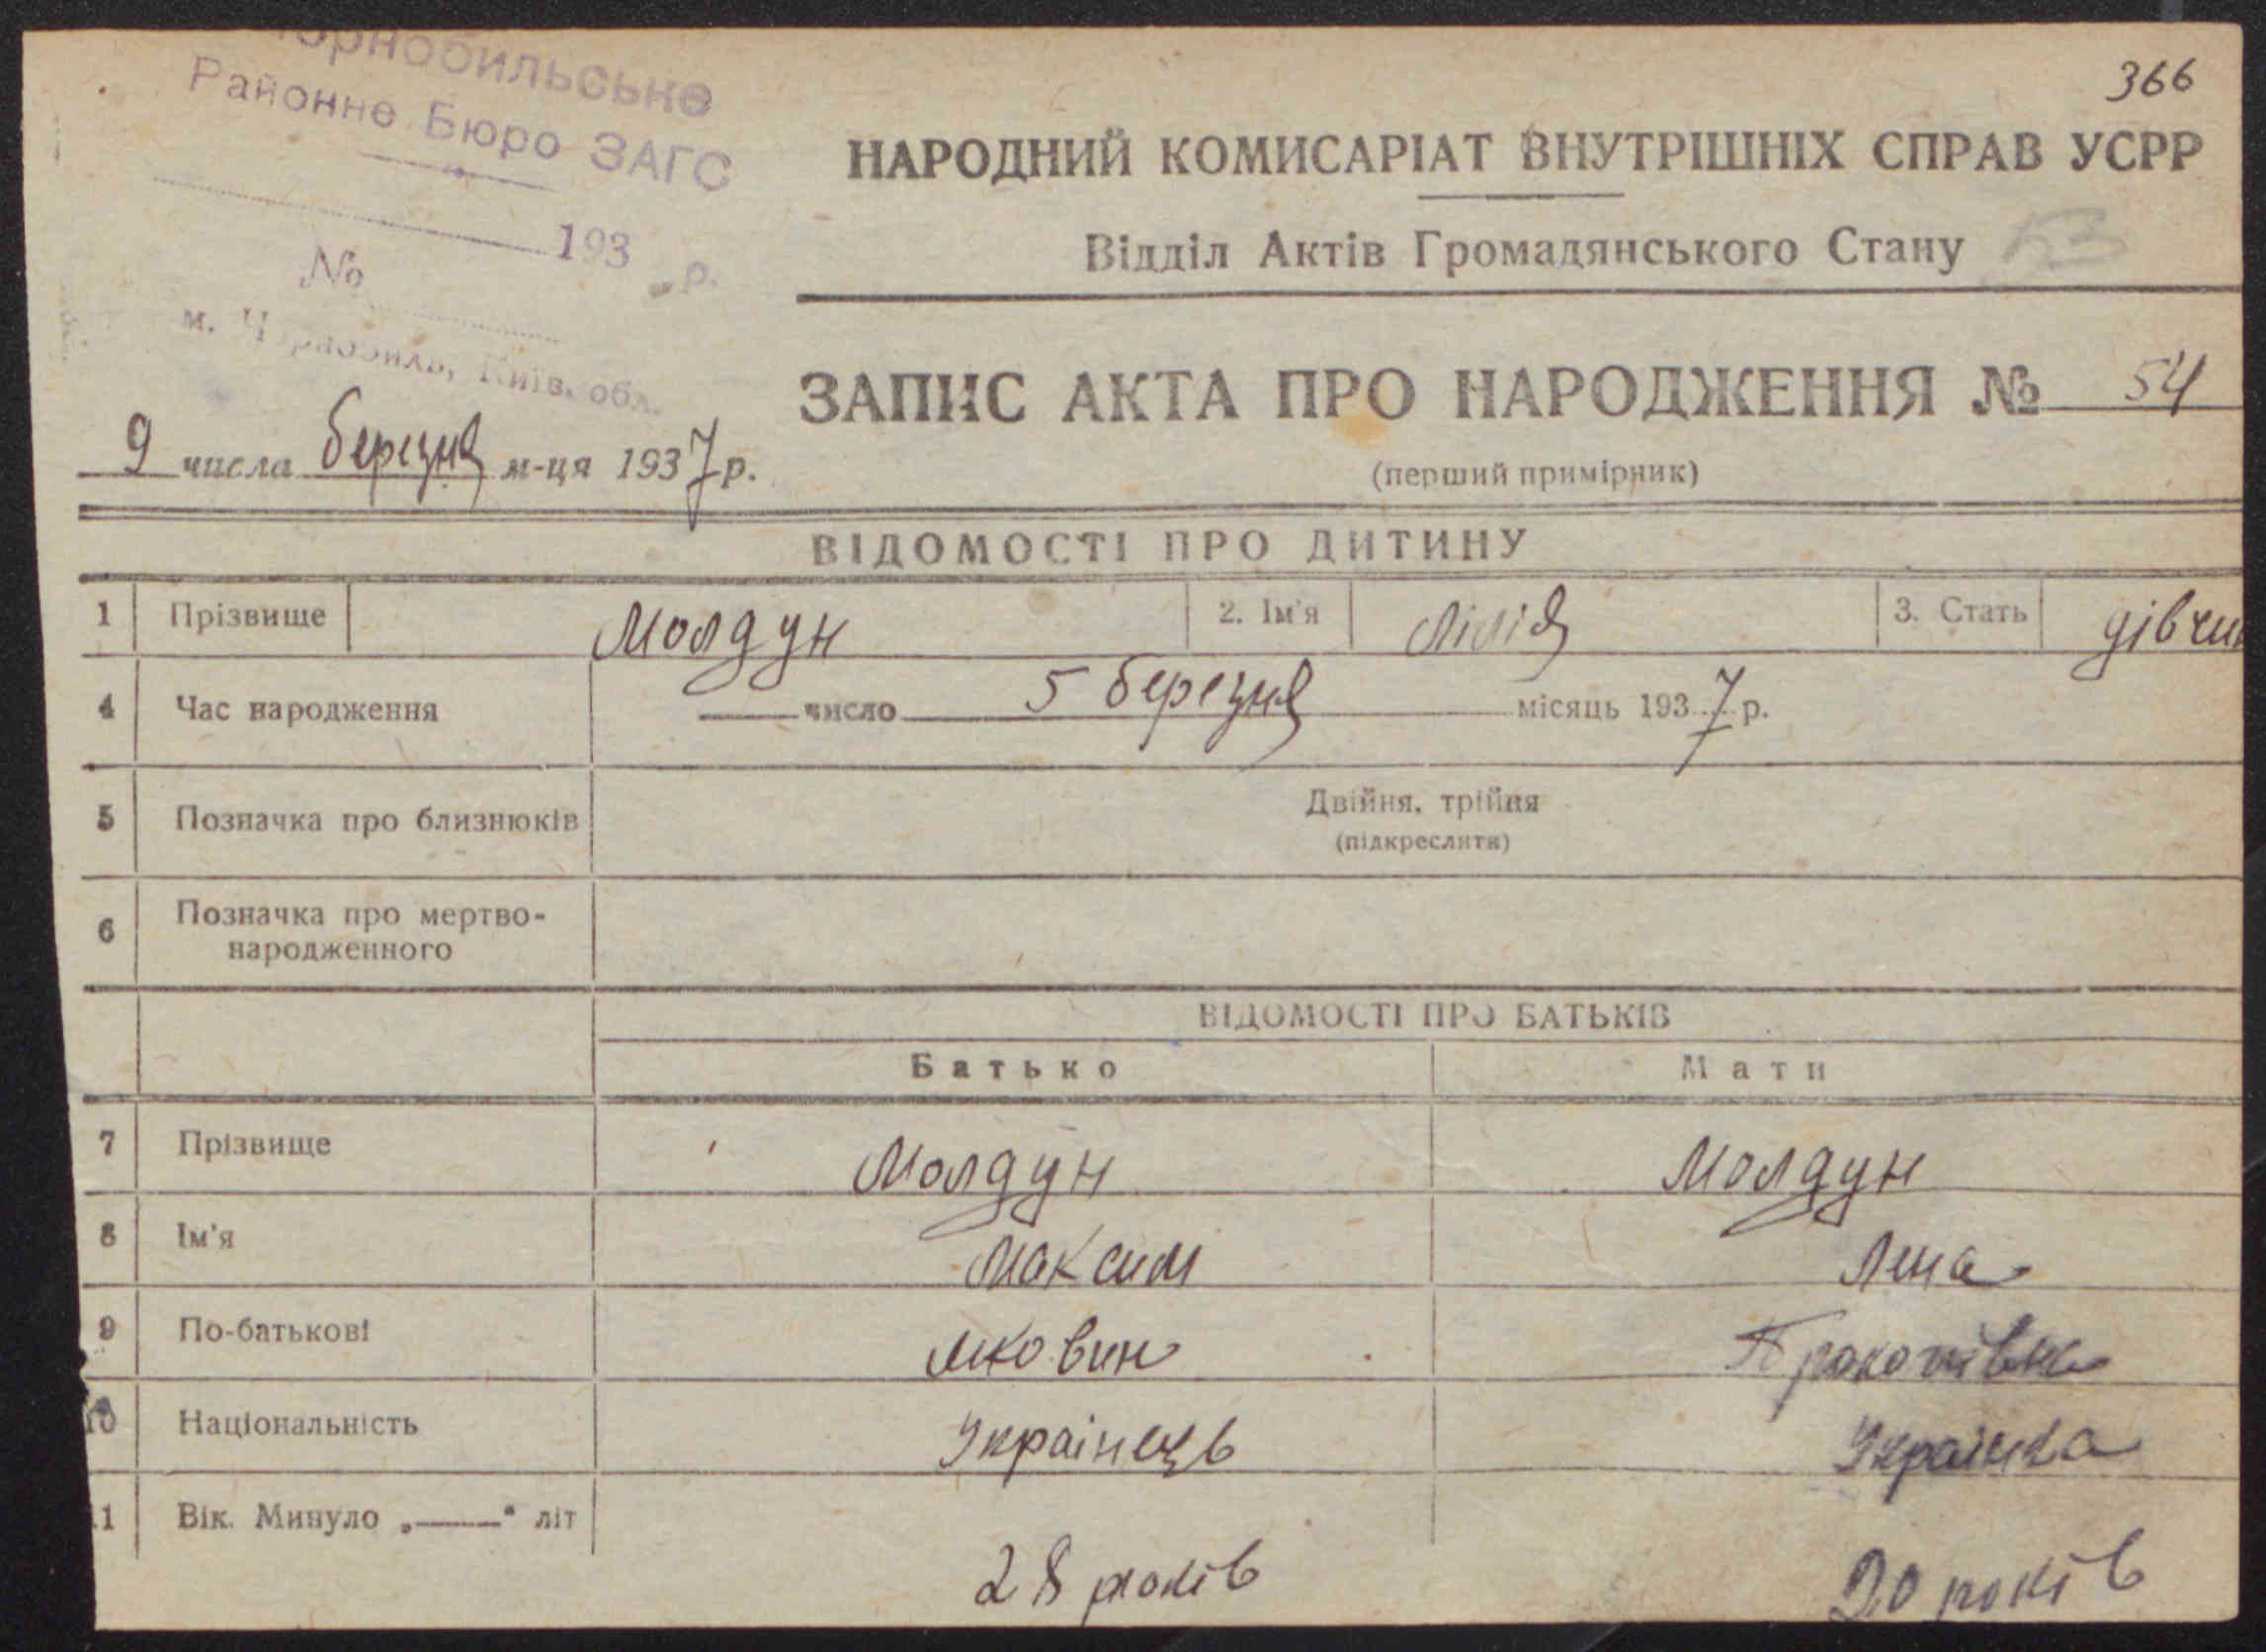 Чорнобильське
Районне Бюро ЗАГС
193 р.
№
м. Чорнобиль, Київ. обл.
366
НАРОДНИЙ КОМИСАРІАТ ВНУТРІШНІХ СПРАВ УСРР
Відділ Актів Громадянського Стану
ЗАПИС АКТА ПРО НАРОДЖЕННЯ № 54
(перший примірник)
9 числа березня м-ця 1937 р.
ВІДОМОСТІ ПРО ДИТИНУ
1 Прізвище Молдун 2. Ім'я Лілія 3. Стать дівчин
4 Час народження число 5 березня місяць 1937 р.
5 Позначка про близнюків Двійня, трійня
(підкреслити)
6 Позначка про мертво-
народженного
ВІДОМОСТІ ПРО БАТЬКІВ
Батько Мати
7 Прізвище Молдун Молдун
8 Ім'я Максим Лена
9 По-батькові Яковин Прокопівна
10 Національність Українець Українка
11 Вік. Минуло „——“ літ
28 років 20 років